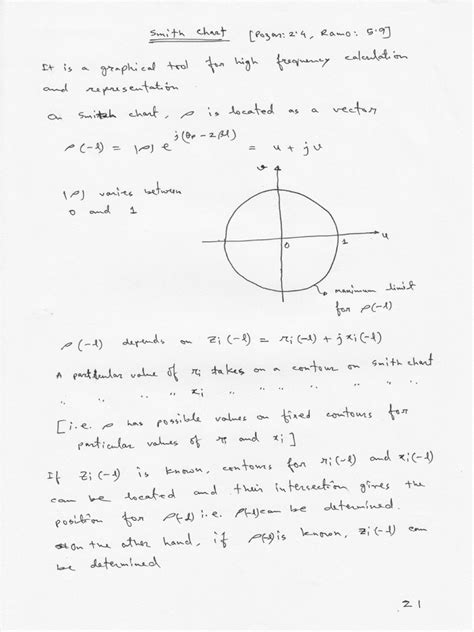 Smith Chart [Pozar: 2.4, Ramo: 5.9]
It is a graphical tool for high frequency calculation
and representation
On Smith chart, ρ is located as a vector
ρ(-l) = |ρ| e^{j(θρ - 2βl)} = u + jv
|ρ| varies between
0 and 1
v
u
0
1
maximum limit
for ρ(-l)
ρ(-l) depends on Zi(-l) = ri(-l) + jxi(-l)
A particular value of ri takes on a contour on smith chart
" " " xi " " " " " "
[i.e. ρ has possible values on fixed contours for
particular values of ri and xi]
If Zi(-l) is known, contours for ri(-l) and xi(-l)
can be located and their intersection gives the
position for ρ(-l) i.e. ρ(-l) can be determined.
On the other hand, if ρ(-l) is known, Zi(-l) can
be determined
21